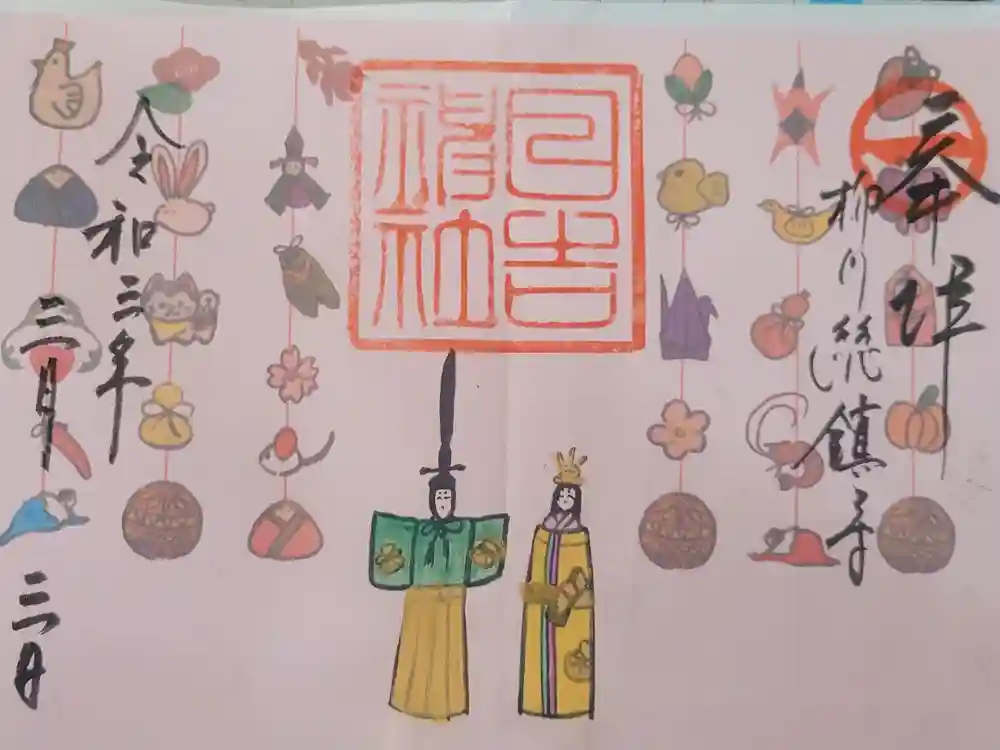 奉拝
柳川総鎮守
日吉神社
令和三年
三月
三日